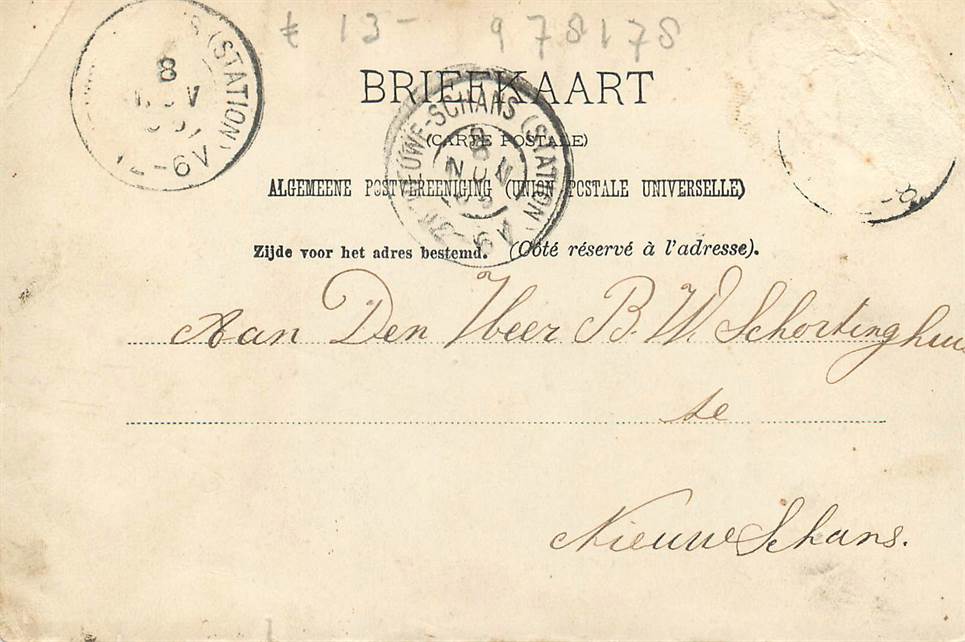 € 13- 978178
S (STATION)
8
NOV
-6V
BRIEFKAART
(CARTE POSTALE)
NIEUWE-SCHANS (STATION)
8
NOV
03
ALGEMEENE POSTVEREENIGING (UNION POSTALE UNIVERSELLE)
Zijde voor het adres bestemd. (Côté réservé à l'adresse).
Aan Den Heer B. W. Schortinghuis
te
Nieuwe Schans.